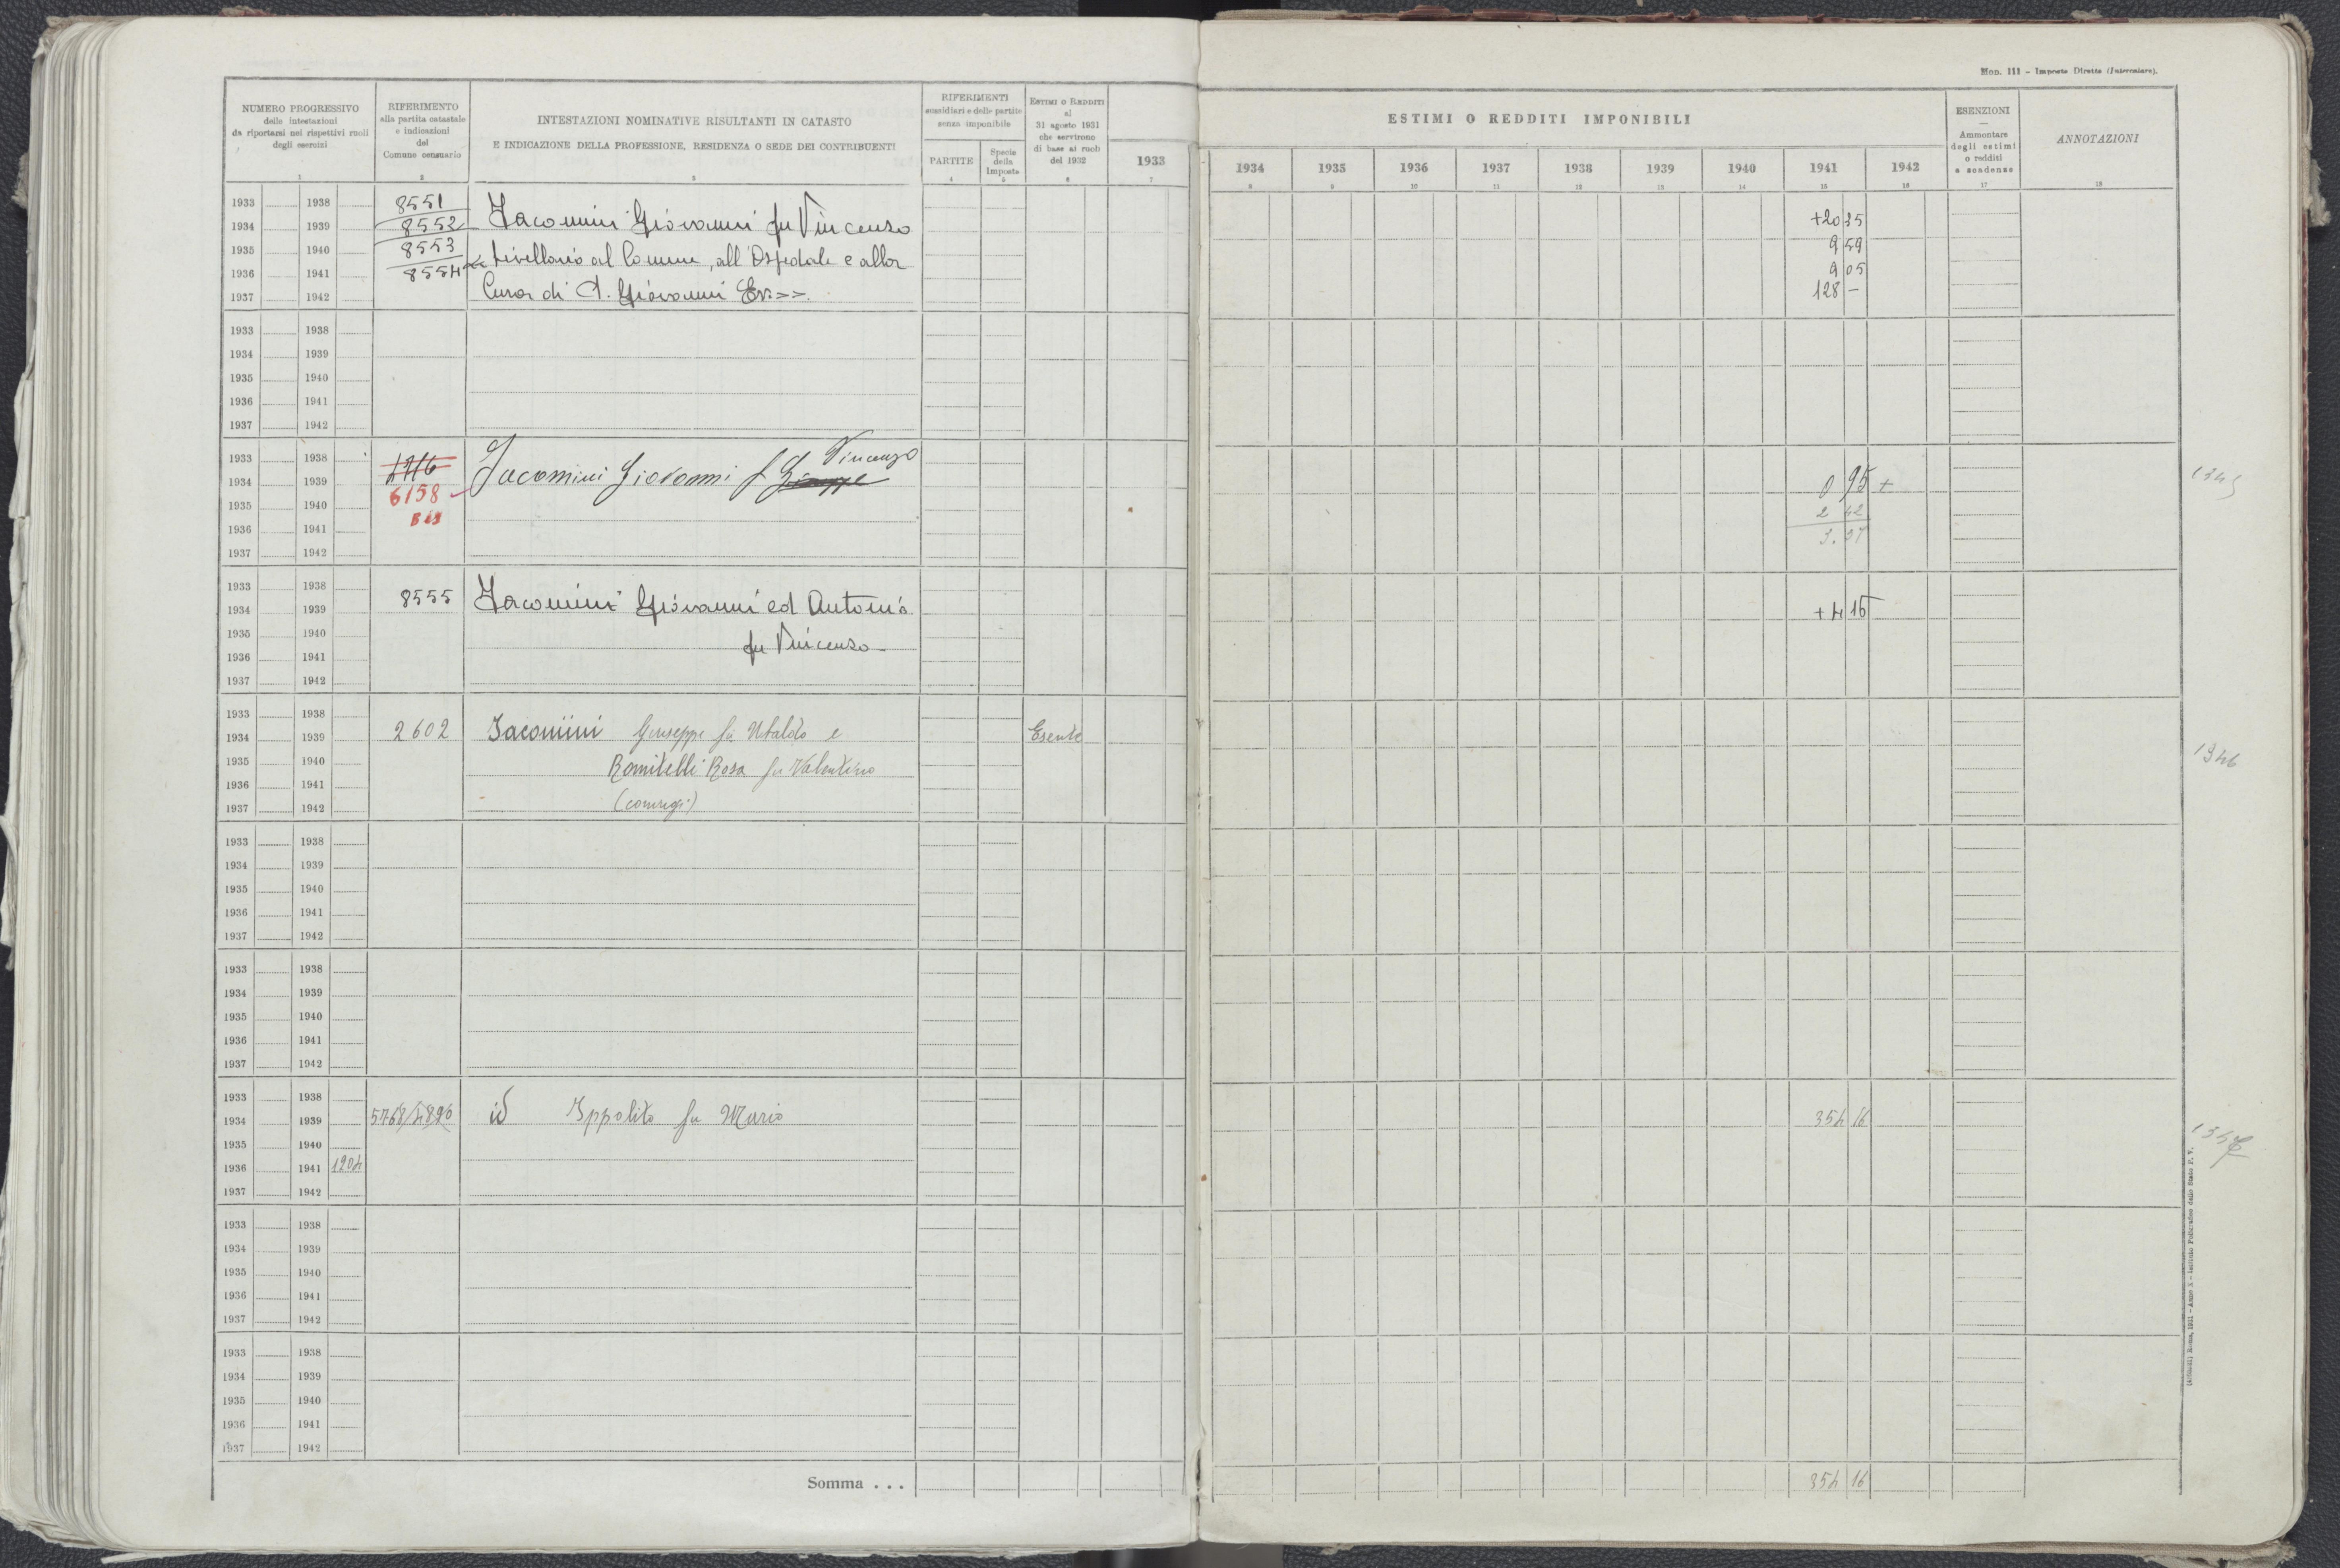 Mod. 111 - Imposte Dirette (Intercalare).
NUMERO PROGRESSIVO
delle intestazioni
da riportarsi nei rispettivi ruoli
degli esercizi
1
RIFERIMENTO
alla partita catastale
e indicazioni
del
Comune censuario
2
INTESTAZIONI NOMINATIVE RISULTANTI IN CATASTO
E INDICAZIONE DELLA PROFESSIONE, RESIDENZA O SEDE DEI CONTRIBUENTI
3
RIFERIMENTI
sussidiari e delle partite
senza imponibile
PARTITE
4
Specie
della
Imposta
5
ESTIMI O REDDITI
al
31 agosto 1931
che servirono
di base ai ruoli
del 1932
6
1933
7
ESTIMI O REDDITI IMPONIBILI
1934 1935 1936 1937 1938 1939 1940 1941 1942
8 9 10 11 12 13 14 15 16
ESENZIONI
—
Ammontare
degli estimi
o redditi
a scadenza
17
ANNOTAZIONI
18
1933 1938 8551
1934 1939 8552 Iacomini Giovanni fu Vincenzo +20 35
1935 1940 8553 9 59
1936 1941 8554 livellario al Comune, all'Ospedale e alla 9 05
1937 1942 Cura di S. Giovanni Ev. 128 —
1933 1938
1934 1939
1935 1940
1936 1941
1937 1942
1933 1938 Vincenzo
1934 1939 6158 Jacomini Giovanni f Giuseppe 0 95 +
1935 1940 Bis 2 42
1936 1941 3.37
1937 1942
1345
1933 1938
1934 1939 8555 Iacomini Giovanni ed Antonio +4 15
1935 1940 fu Vincenzo
1936 1941
1937 1942
1933 1938
1934 1939 2602 Iacomini Giuseppe fu Ubaldo e Esente
1935 1940 Romitelli Rosa fu Valentino
1936 1941 (coniugi)
1937 1942
1346
1933 1938
1934 1939
1935 1940
1936 1941
1937 1942
1933 1938
1934 1939
1935 1940
1936 1941
1937 1942
1933 1938
1934 1939 5768/4896 id Ippolito fu Mario 354 16
1935 1940
1936 1941 1204
1937 1942
1933 1938
1934 1939
1935 1940
1936 1941
1937 1942
1933 1938
1934 1939
1935 1940
1936 1941
1937 1942
Somma . . . 354 16
Roma, 1931 - Anno X - Istituto Poligrafico dello Stato P. V.